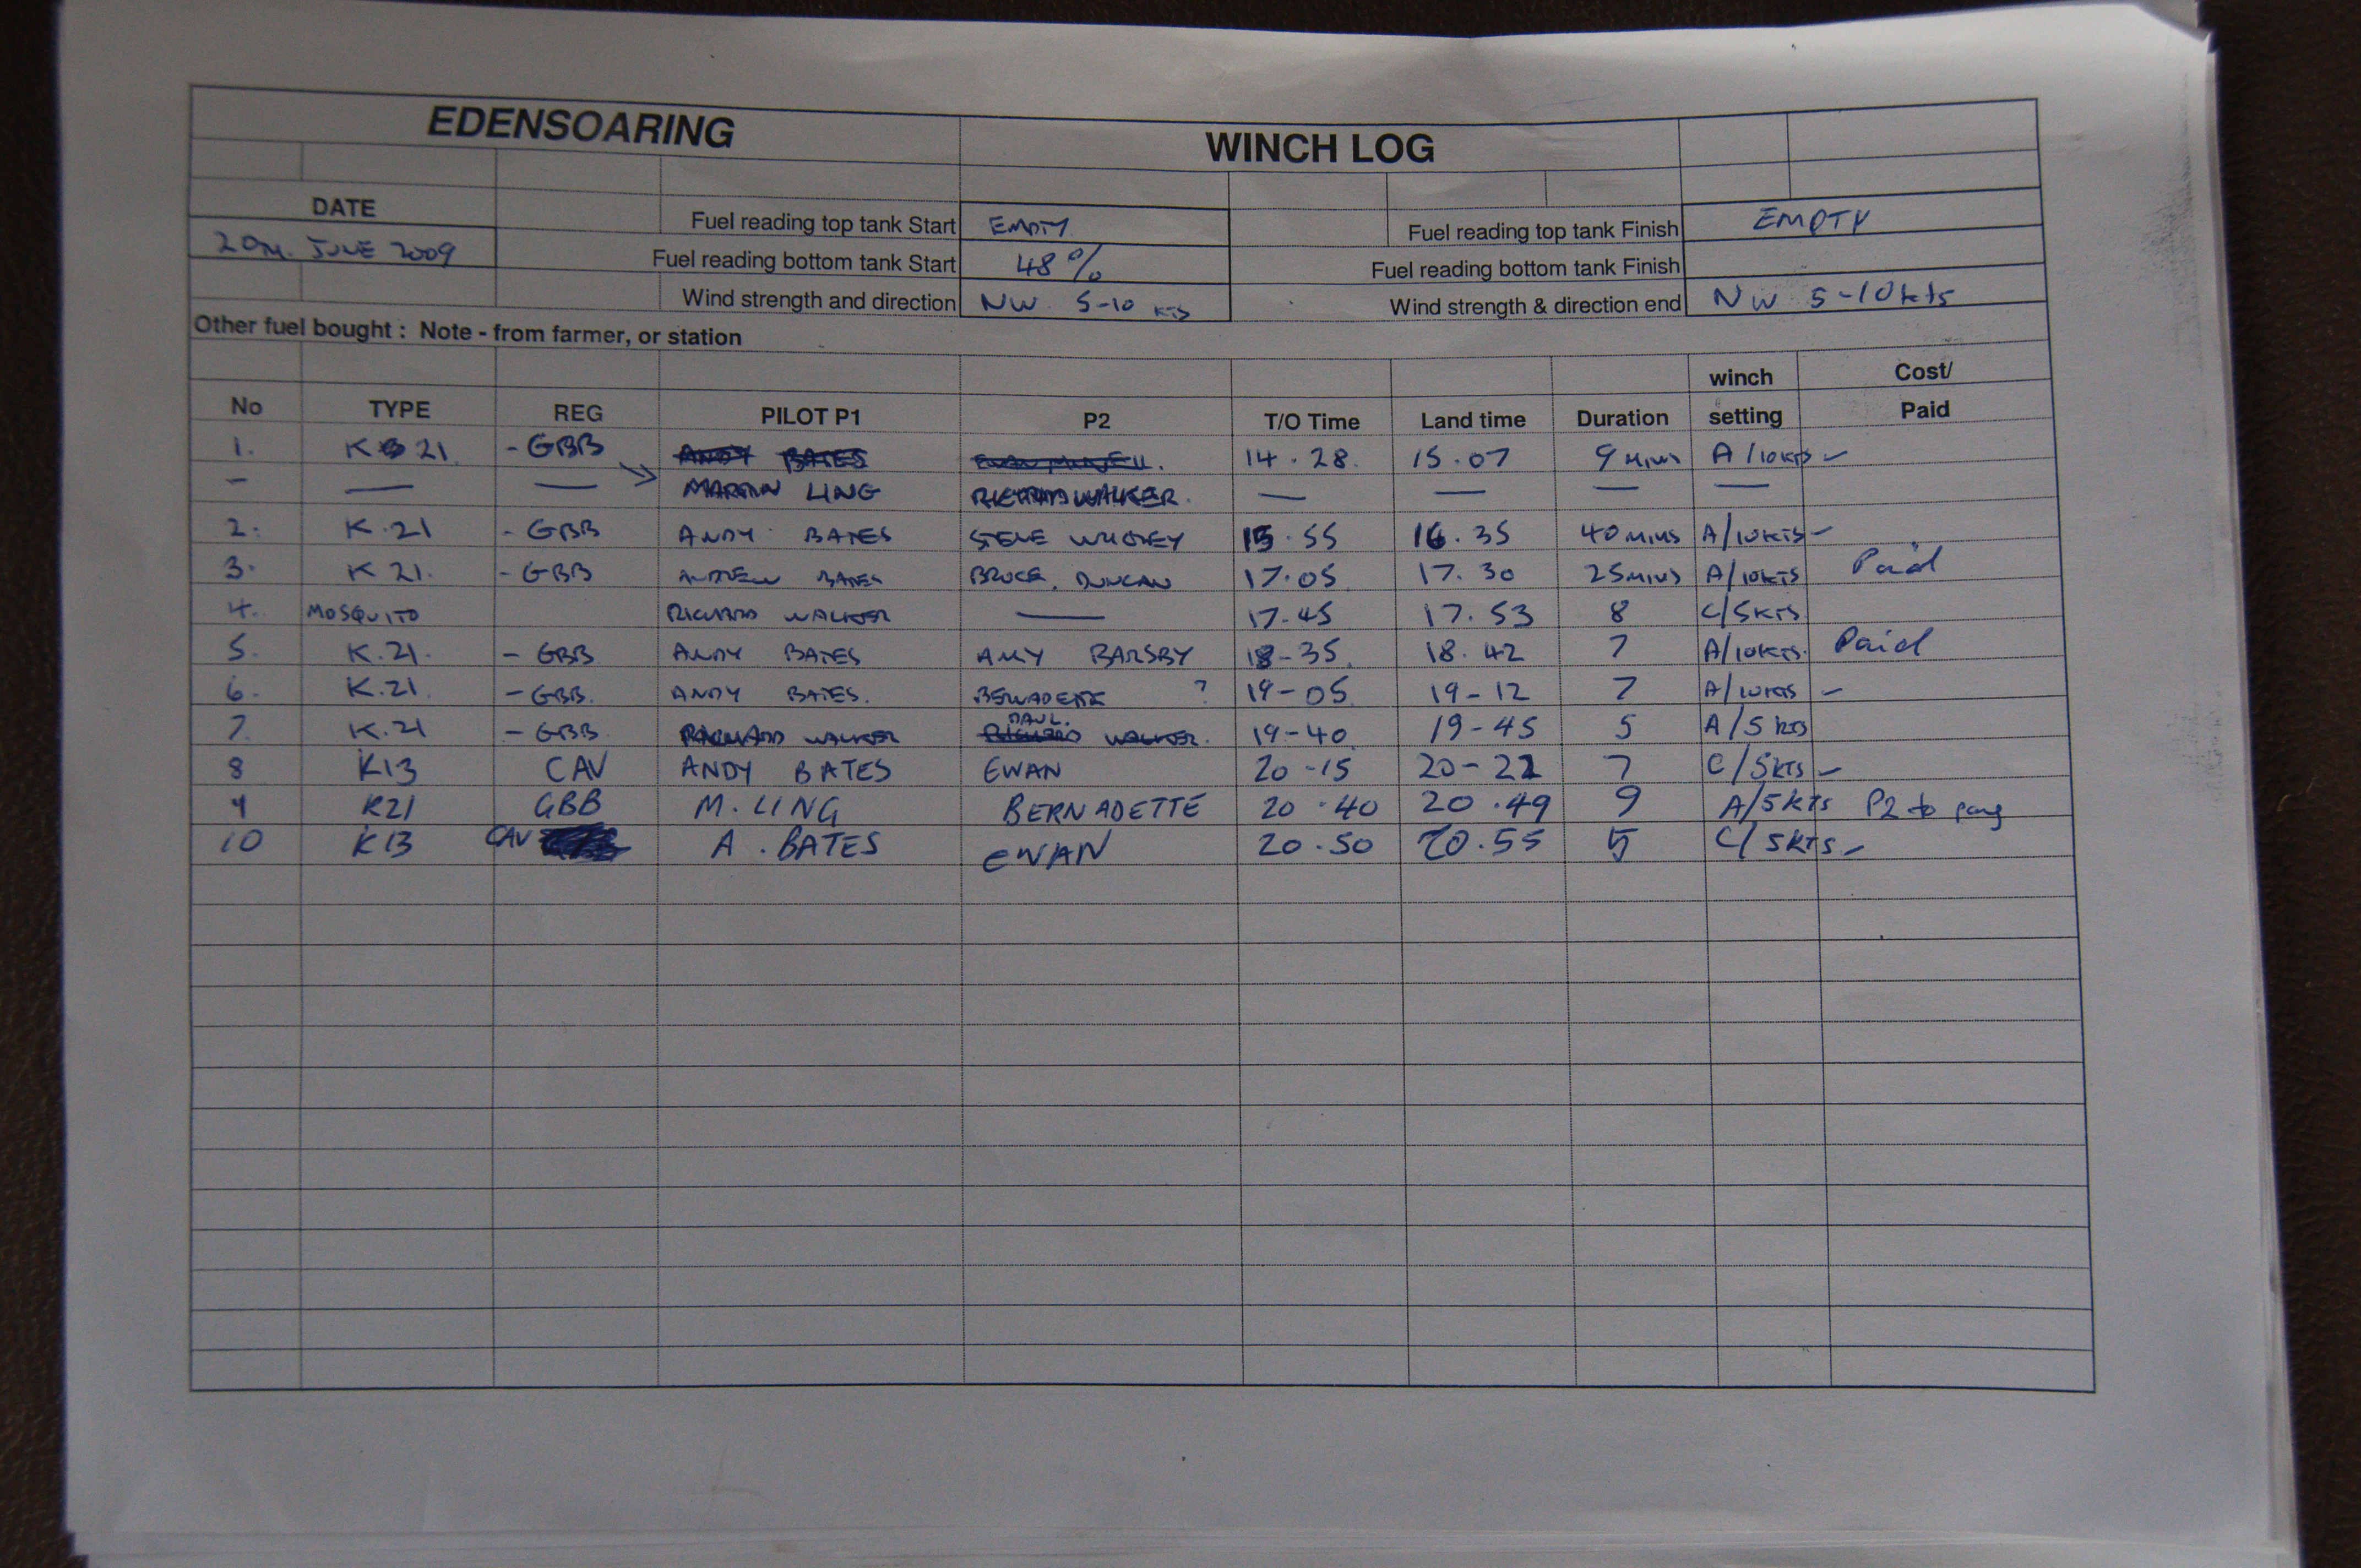 EDENSOARING WINCH LOG
DATE
Fuel reading top tank Start EMPTY Fuel reading top tank Finish EMPTY
20TH. JUNE 2009 Fuel reading bottom tank Start 48% Fuel reading bottom tank Finish
Wind strength and direction NW 5-10 KTS Wind strength & direction end NW 5-10kts
Other fuel bought : Note - from farmer, or station
winch Cost/
No TYPE REG PILOT P1 P2 T/O Time Land time Duration setting Paid
1. K 21 - GBB ANDY BATES 14.28. 15.07 9 MINS A/10KTS -
- — — MARTIN LING RICHARD WALKER. — — — —
2. K.21 - GBB ANDY BATES STEVE 15.55 16.35 40 MINS A/10KTS -
3. K 21. - GBB ANDREW BATES BRUCE. DUNCAN 17.05 17.30 25 MINS A/10KTS Paid
4. MOSQUITO RICHARD WALKER — 17.45 17.53 8 C/5KTS
5. K.21. - GBB ANDY BATES AMY BARSBY 18-35 18.42 7 A/10KTS. Paid
6. K.21. - GBB. ANDY BATES. BERNADETTE ? 19-05 19-12 7 A/10KTS -
7. K.21 - GBB RICHARD WALKER RICHARD PAUL. WALKER. 19-40 19-45 5 A/5 KTS
8 K13 CAV ANDY BATES EWAN 20-15 20-22 7 C/5KTS -
9 K21 GBB M. LING BERNADETTE 20.40 20.49 9 A/5KTS P2 to pay
10 K13 CAV A. BATES EWAN 20.50 20.55 5 C/5KTS -